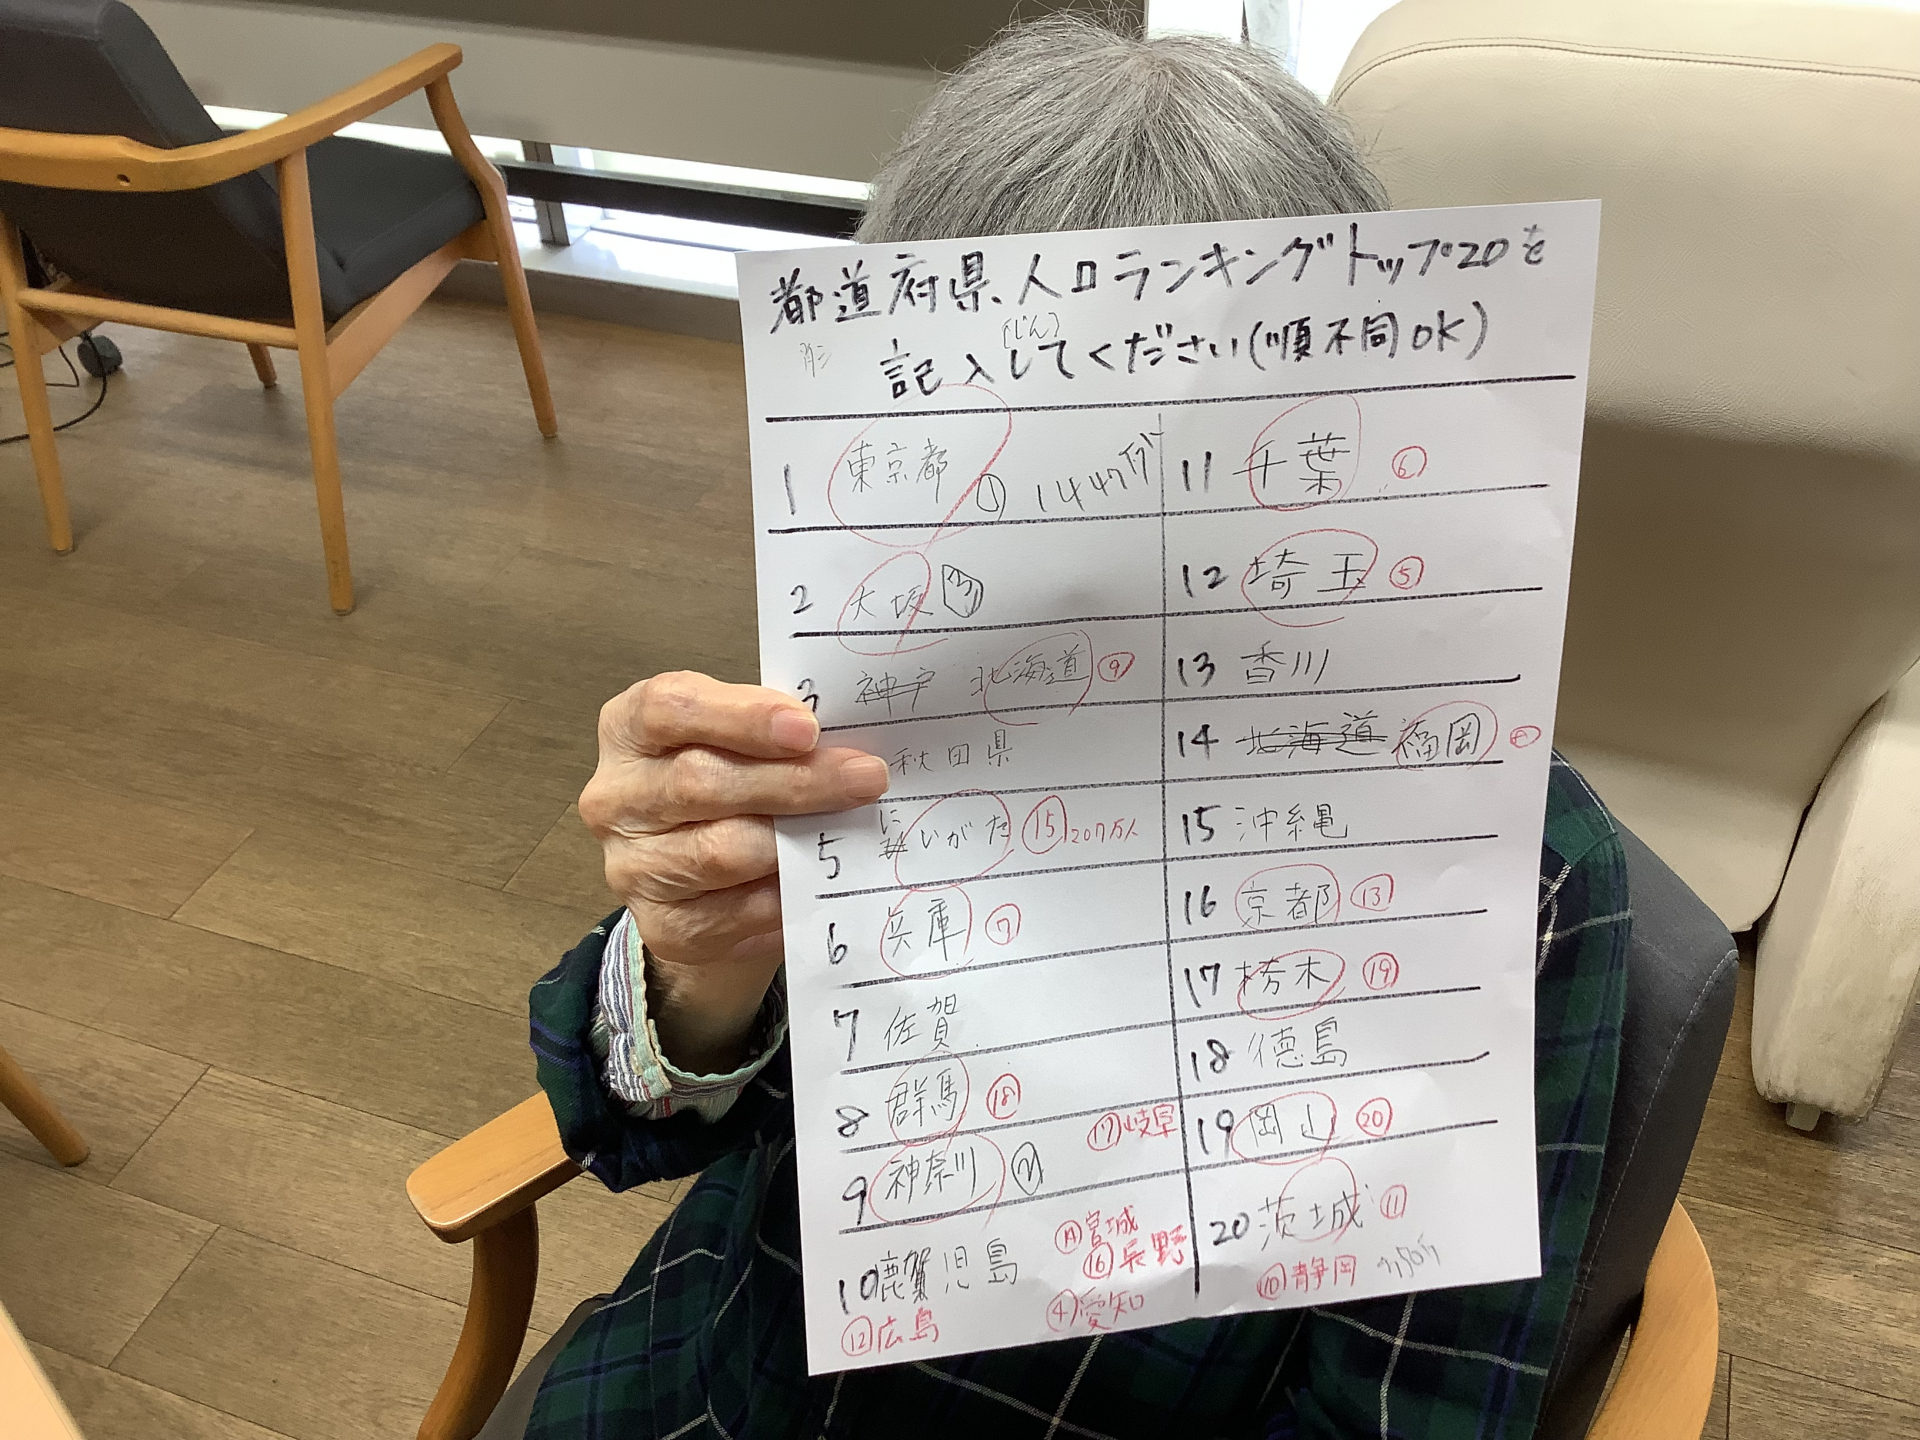 都道府県、人口ランキングトップ20を
(じん)
記入してください(順不同OK)
1 東京都 ① 1447万
2 大坂 ③
3 神戸 北海道 ⑨
秋田県
5 にいがた ⑮ 207万人
6 兵庫 ⑦
7 佐賀
8 群馬 ⑱
⑰岐阜
9 神奈川 ②
⑭宮城
⑯長野
10 鹿児島
⑫広島
④愛知
11 千葉 ⑥
12 埼玉 ⑤
13 香川
14 北海道 福岡 ⑧
15 沖縄
16 京都 ⑬
17 栃木 ⑲
18 徳島
19 岡山 ⑳
20 茨城 ⑪
⑩静岡